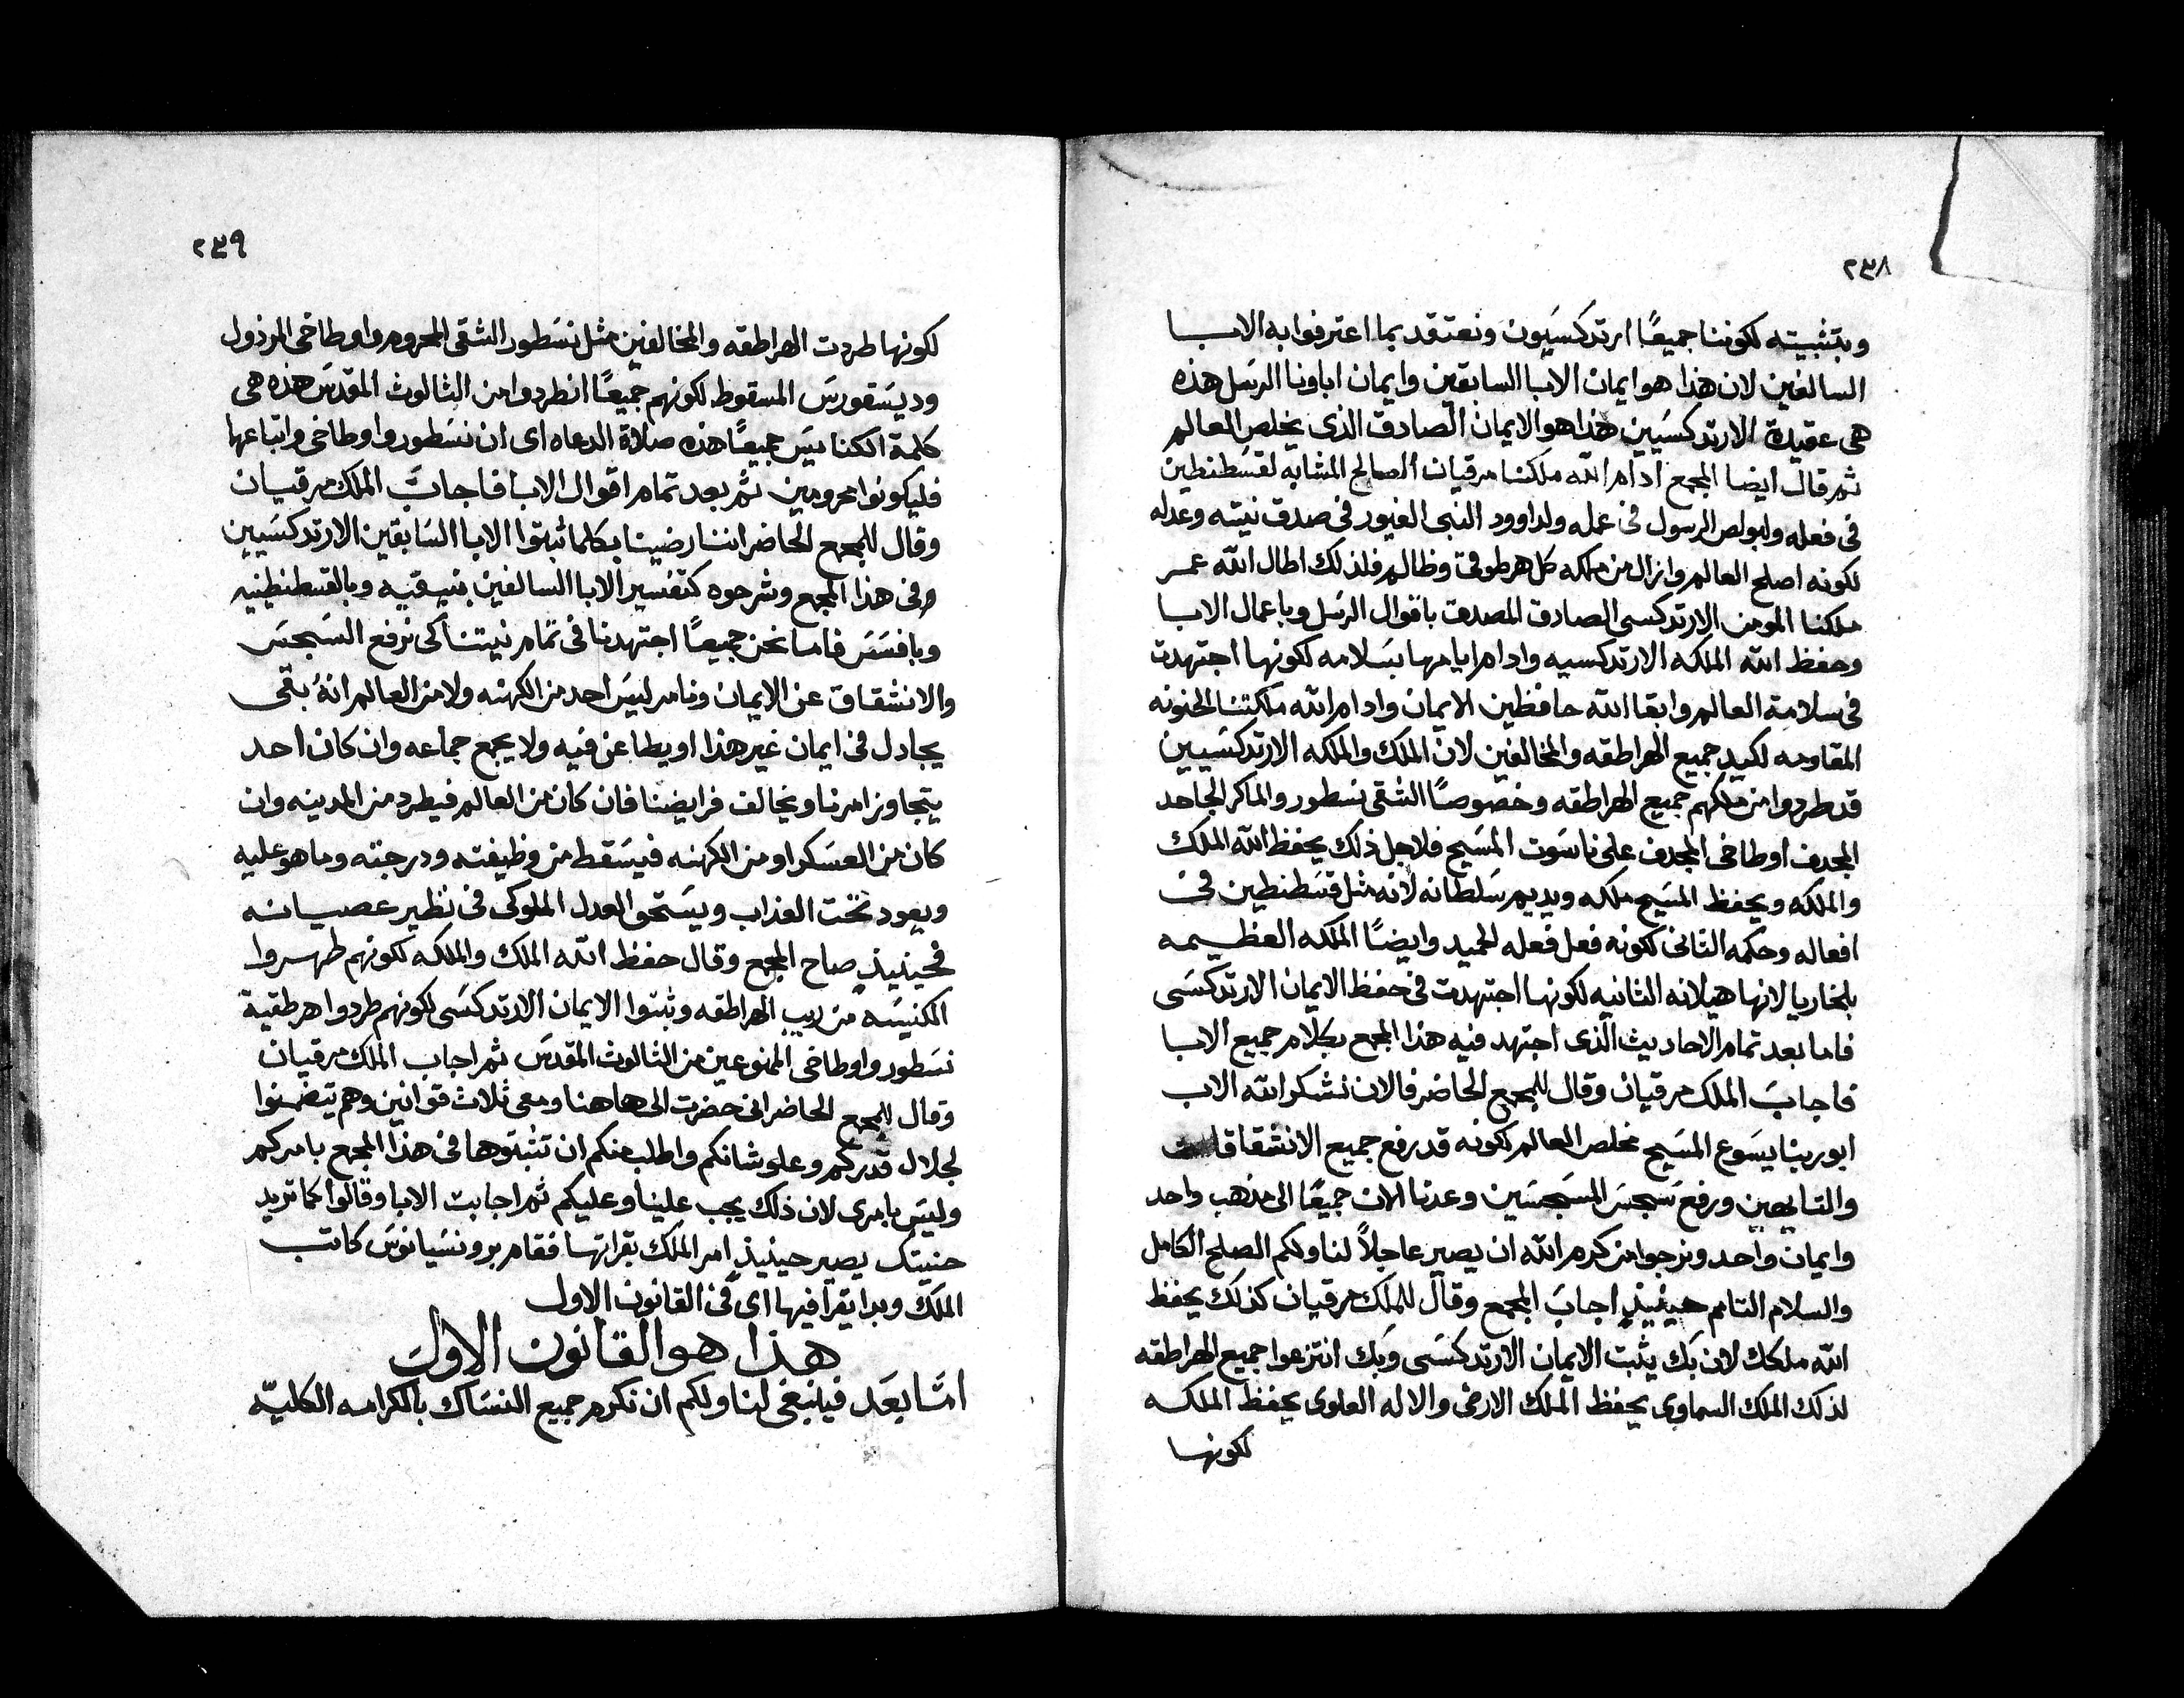 ٢٣٨
وبتثبيته لكوننا جميعًا ارتدكسيون ونعتقد بما اعترفوا به الابا
السالفين لان هذا هو ايمان الابا السابقين وايمان اباونا الرسل هذه
هى عقيدة الارتدكسيين هذا هو الايمان الصادق الذى يخلص العالم
ثم قال ايضا المجمع ادام الله ملكنا مرقيان الصالح المشابه لقسطنطين
فى فعله ولبولص الرسول فى عمله ولداوود النبى الغيور فى صدق نيته وعدله
لكونه اصلح العالم وازال من مملكه كل هرطوقى وظالم فلذلك اطال الله عمر
ملكنا المومن الارتدكسى الصادق المصدق باقوال الرسل وباعمال الابا
وحفظ الله الملكه الارتدكسيه وادام ايامها بسلامه لكونها اجتهدت
فى سلامة العالم وابقا الله حافظين الايمان وادام الله ملكتنا الحنونه
المقاومه لكيد جميع الهراطقه والمخالفين لان الملك والملكه الارتدكسيين
قد طردوا من ملكهم جميع الهراطقه وخصوصًا الشقى نسطور والماكر الجاحد
المجدف اوطاخى المجدف على ناسوت المسيح فلاجل ذلك يحفظ الله الملك
والملكه ويحفظ المسيح ملكه ويديم سلطانه لانه مثل قسطنطين فى
افعاله وحكمه الثانى لكونه فعل فعله الحميد وايضًا الملكه العظيمه
بلخاريا لانها هيلانه الثانيه لكونها اجتهدت فى حفظ الايمان الارتدكسى
فاما بعد تمام الاحاديث الذى اجتهد فيه هذا المجمع بكلام جميع الابا
فاجاب الملك مرقيان وقال للمجمع الحاضر فالان نشكر الله الاب
ابو ربنا يسوع المسيح مخلص العالم لكونه قد رفع جميع الانشقاقات
والتابعين ورفع سجس المسجسين وعدنا الان جميعًا الى مذهب واحد
وايمان واحد ونرجوا من كرم الله ان يصير عاجلاً لنا ولكم الصلح الكامل
والسلام التام حينيذٍ اجاب المجمع وقال للملك مرقيان كذلك يحفظ
الله ملكك لان بك يثبت الايمان الارتدكسى وبك انتزعوا جميع الهراطقه
لذلك الملك السماوى يحفظ الملك الارضى والاله العلوى يحفظ الملكه
لكونها
٢٣٩
لكونها طردت الهراطقه والمخالفين مثل نسطور الشقى المحروم واوطاخى المرذول
وديسقورس المسقوط لكونهم جميعًا انطردوا من الثالوث المقدس هذه هى
كلمة الكنايس جميعًا هذه صلاة الدعاه اى ان نسطور واوطاخى واتباعها
فليكونوا محرومين ثم بعد تمام اقوال الابا فاجاب الملك مرقيان
وقال للمجمع الحاضر اننا رضينا بكلما ثبتوا الابا السابقين الارتدكسيين
وفى هذا المجمع وشرحوه كتفسير الابا السالفين بنيقيه وبالقسطنطينيه
وبافسس فاما نحن جميعًا اجتهدنا فى تمام نيتنا كى نرفع السجس
والانشقاق عن الايمان ونامر ليس احد من الكهنه ولا من العالم انهُ بقى
يجادل فى ايمان غير هذا او يطاعن فيه ولا يجمع جماعه وان كان احد
يتجاوز امرنا ويخالف فرايضنا فان كان من العالم فيطرد من المدينه وان
كان من العسكر او من الكهنه فيسقط من وظيفته ودرجته وما هو عليه
ويعود تحت العذاب ويستحق العدل الملوكى فى نظير عصيانه
فحينيذٍ صاح المجمع وقال حفظ الله الملك والملكه لكونهم طهروا
الكنيسه من ريب الهراطقه وثبتوا الايمان الارتدكسى لكونهم طردوا هرطقية
نسطور واوطاخى الممنوعين من الثالوث المقدس ثم اجاب الملك مرقيان
وقال للمجمع الحاضر انى حضرت الى هاهنا ومعى ثلاث قوانين وهم يتضمنوا
لجلال قدركم وعلو شانكم واطلب منكم ان تثبتوها فى هذا المجمع بامركم
وليس بامرى لان ذلك يجب علينا وعليكم ثم اجابت الابا وقالوا كما تريد
حنيتك يصير حينيذٍ امر الملك بقراتها فقام برونسيانوس كاتب
الملك وبدا يقرا فيها اى فى القانون الاول
هذا هو القانون الاول
امّا بعد فينبغى لنا ولكم ان نكرم جميع النساك بالكرامه الكليّه